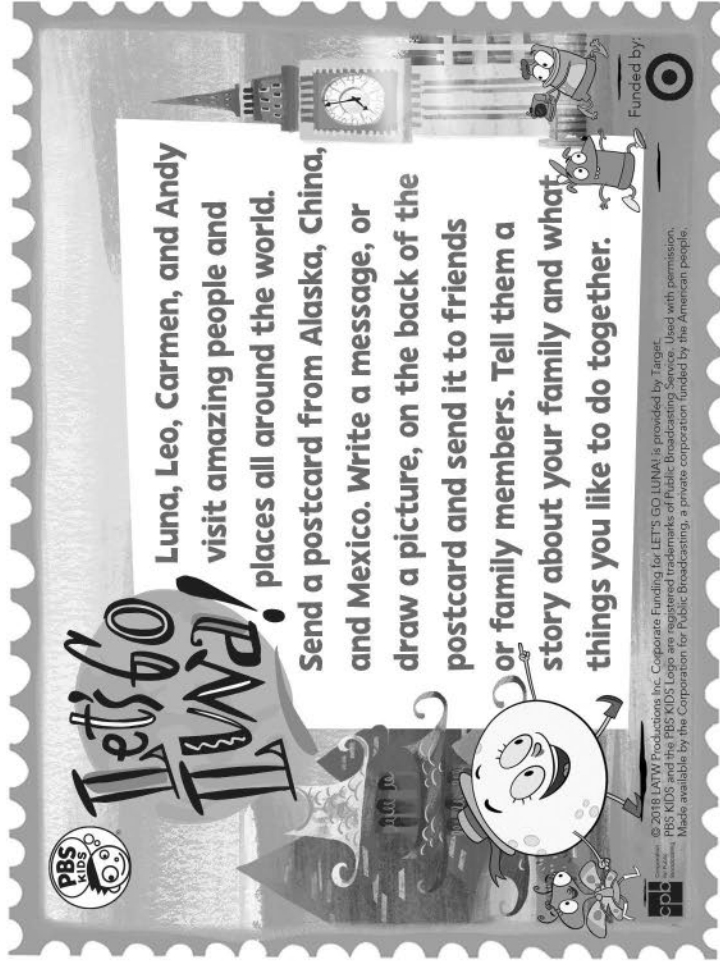 PBS
KIDS
Let's Go
LUNA!
Luna, Leo, Carmen, and Andy
visit amazing people and
places all around the world.
Send a postcard from Alaska, China,
and Mexico. Write a message, or
draw a picture, on the back of the
postcard and send it to friends
or family members. Tell them a
story about your family and what
things you like to do together.
Funded by:
cpb
Corporation
for Public
Broadcasting
© 2018 LATW Productions Inc. Corporate Funding for LET'S GO LUNA! is provided by Target.
PBS KIDS and the PBS KIDS Logo are registered trademarks of Public Broadcasting Service. Used with permission.
Made available by the Corporation for Public Broadcasting, a private corporation funded by the American people.